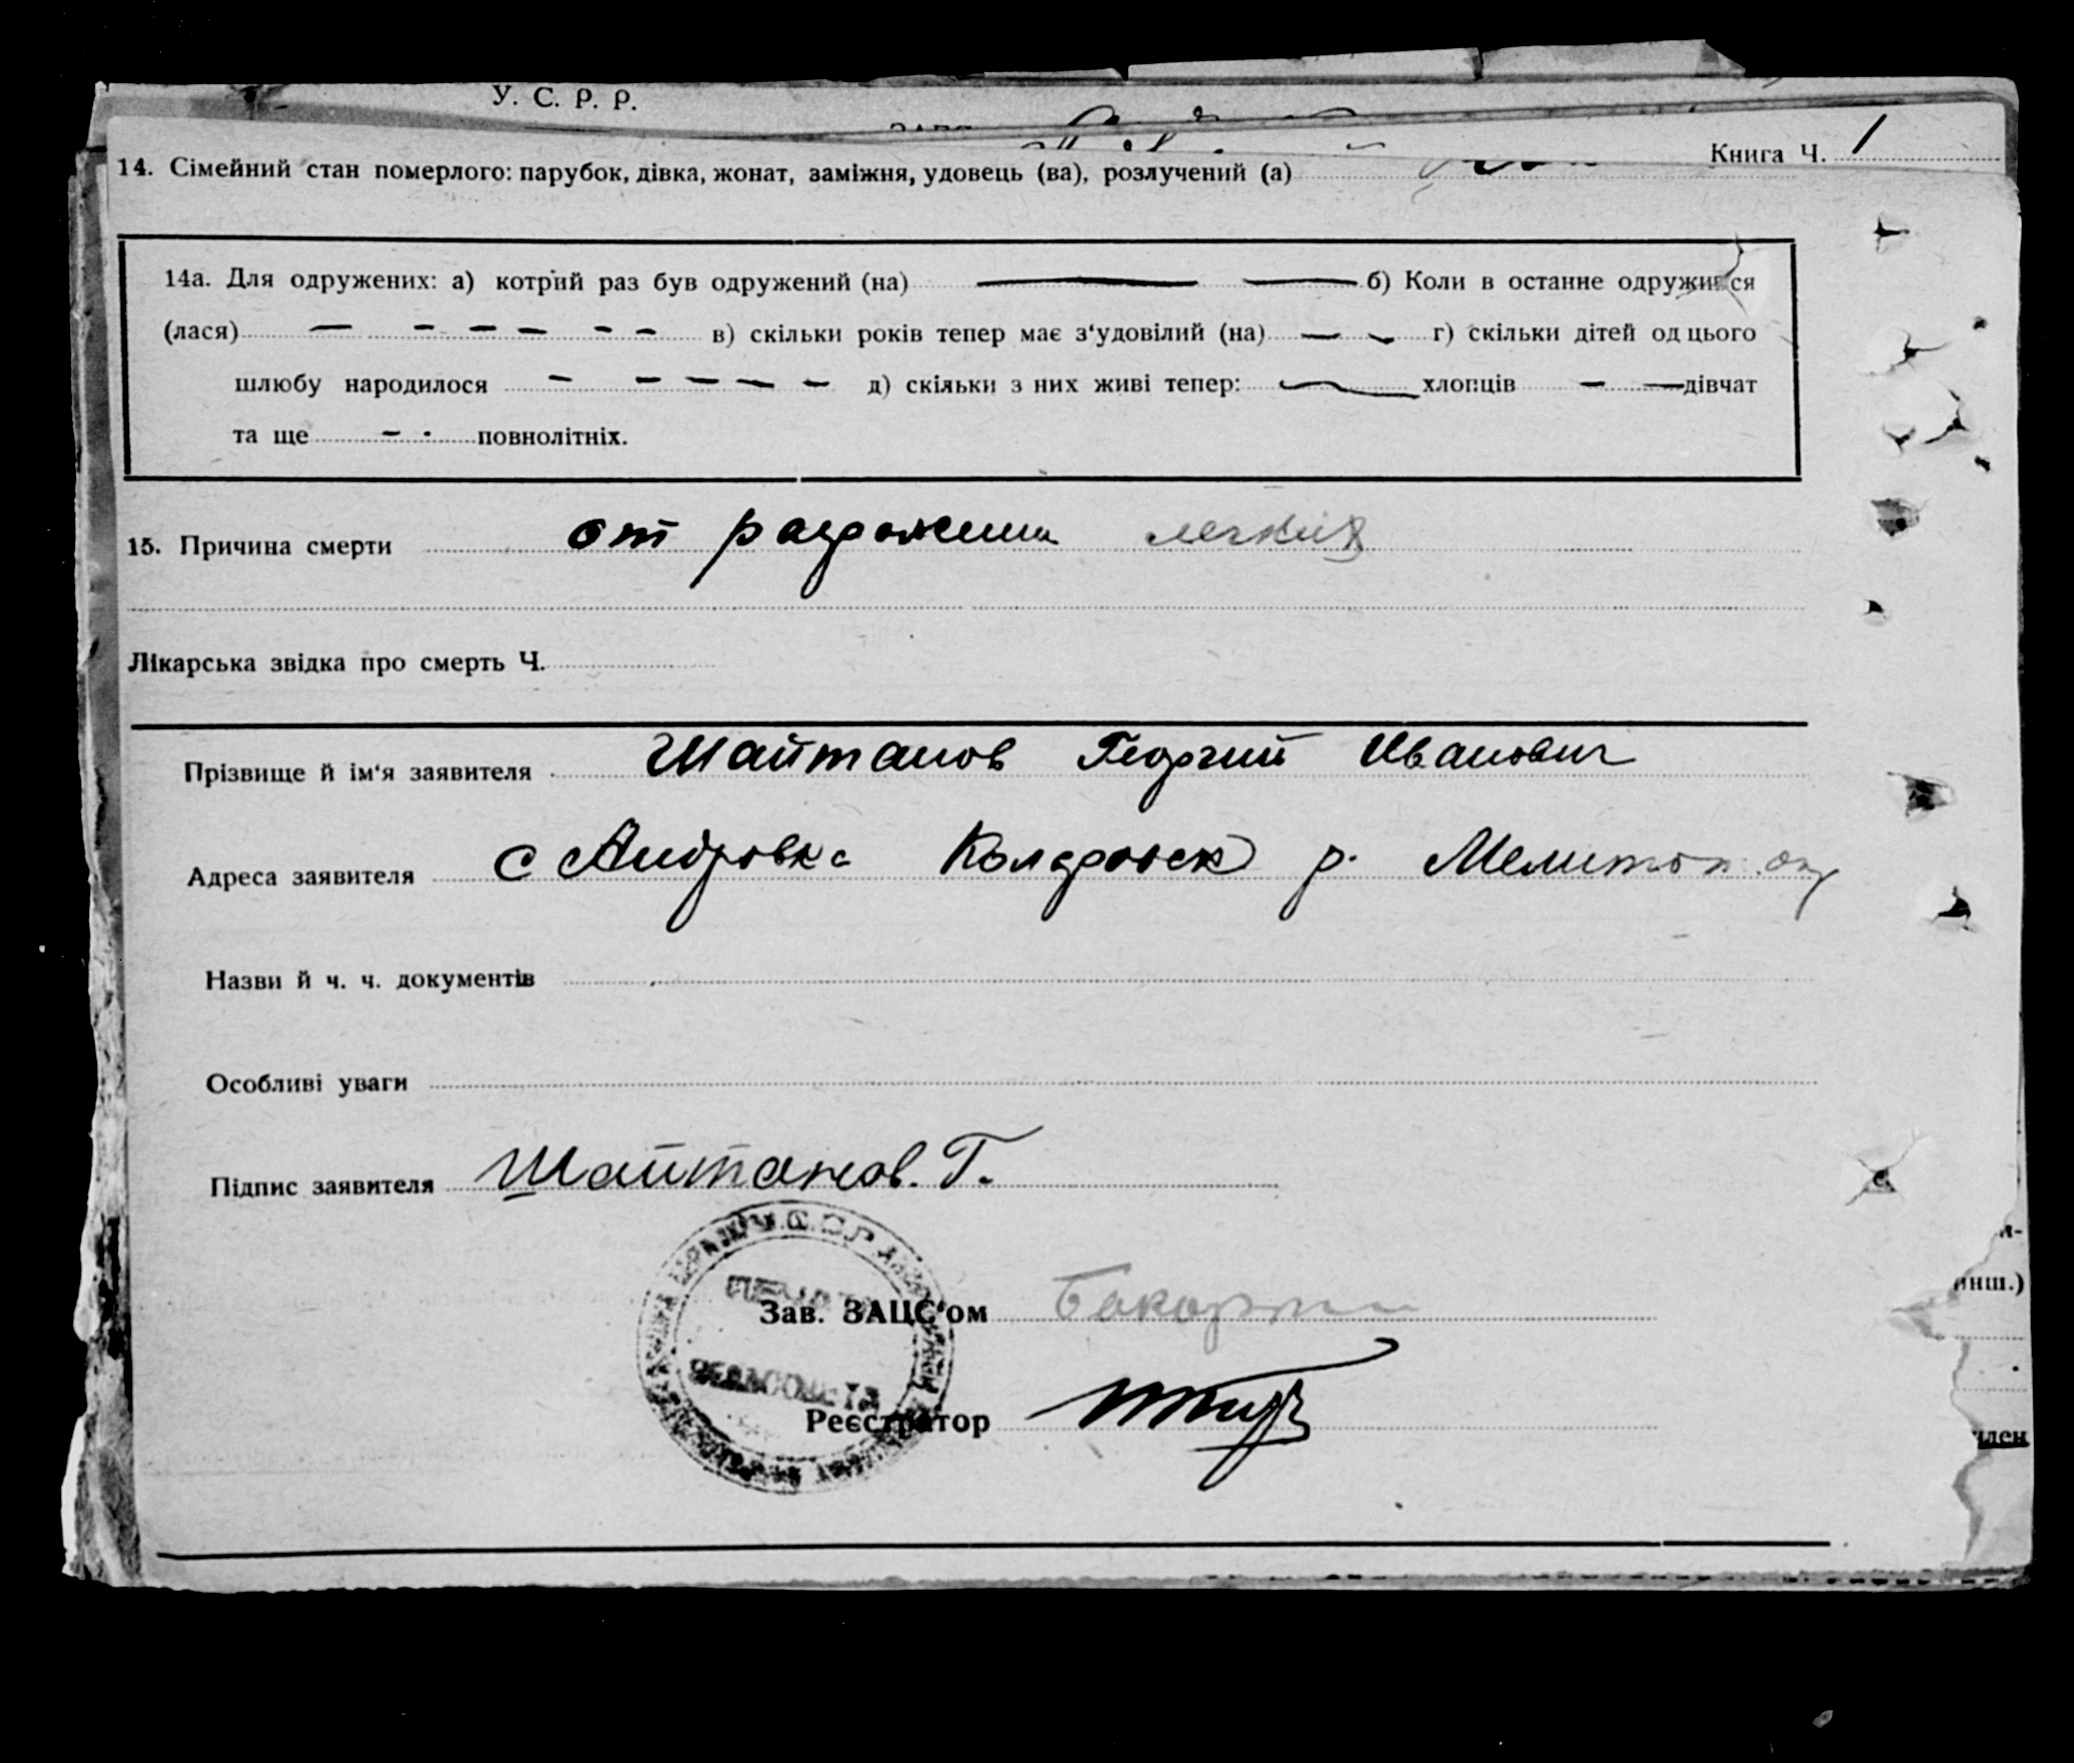 У. С. Р. Р.
Книга Ч. 1
14. Сімейний стан померлого: парубок, дівка, жонат, заміжня, удовець (ва), розлучений (а)
14а. Для одружених: а) котрий раз був одружений (на) — — б) Коли в останне одружився
(лася) — - - - - - в) скільки років тепер має з‘удовілий (на) — - г) скільки дітей од цього
шлюбу народилося - - - - - д) скільки з них живі тепер: — хлопців - — дівчат
та ще - - повнолітніх.
15. Причина смерти от раздражения легких
Лікарська звідка про смерть Ч.
Прізвище й ім‘я заявителя Шайтанов Георгий Иванович
Адреса заявителя с Андровка Коларовск р. Мелитоп. окр
Назви й ч. ч. документів
Особливі уваги
Підпис заявителя Шайтанов. Г.
Зав. ЗАЦС‘ом
Реєстратор
инш.)